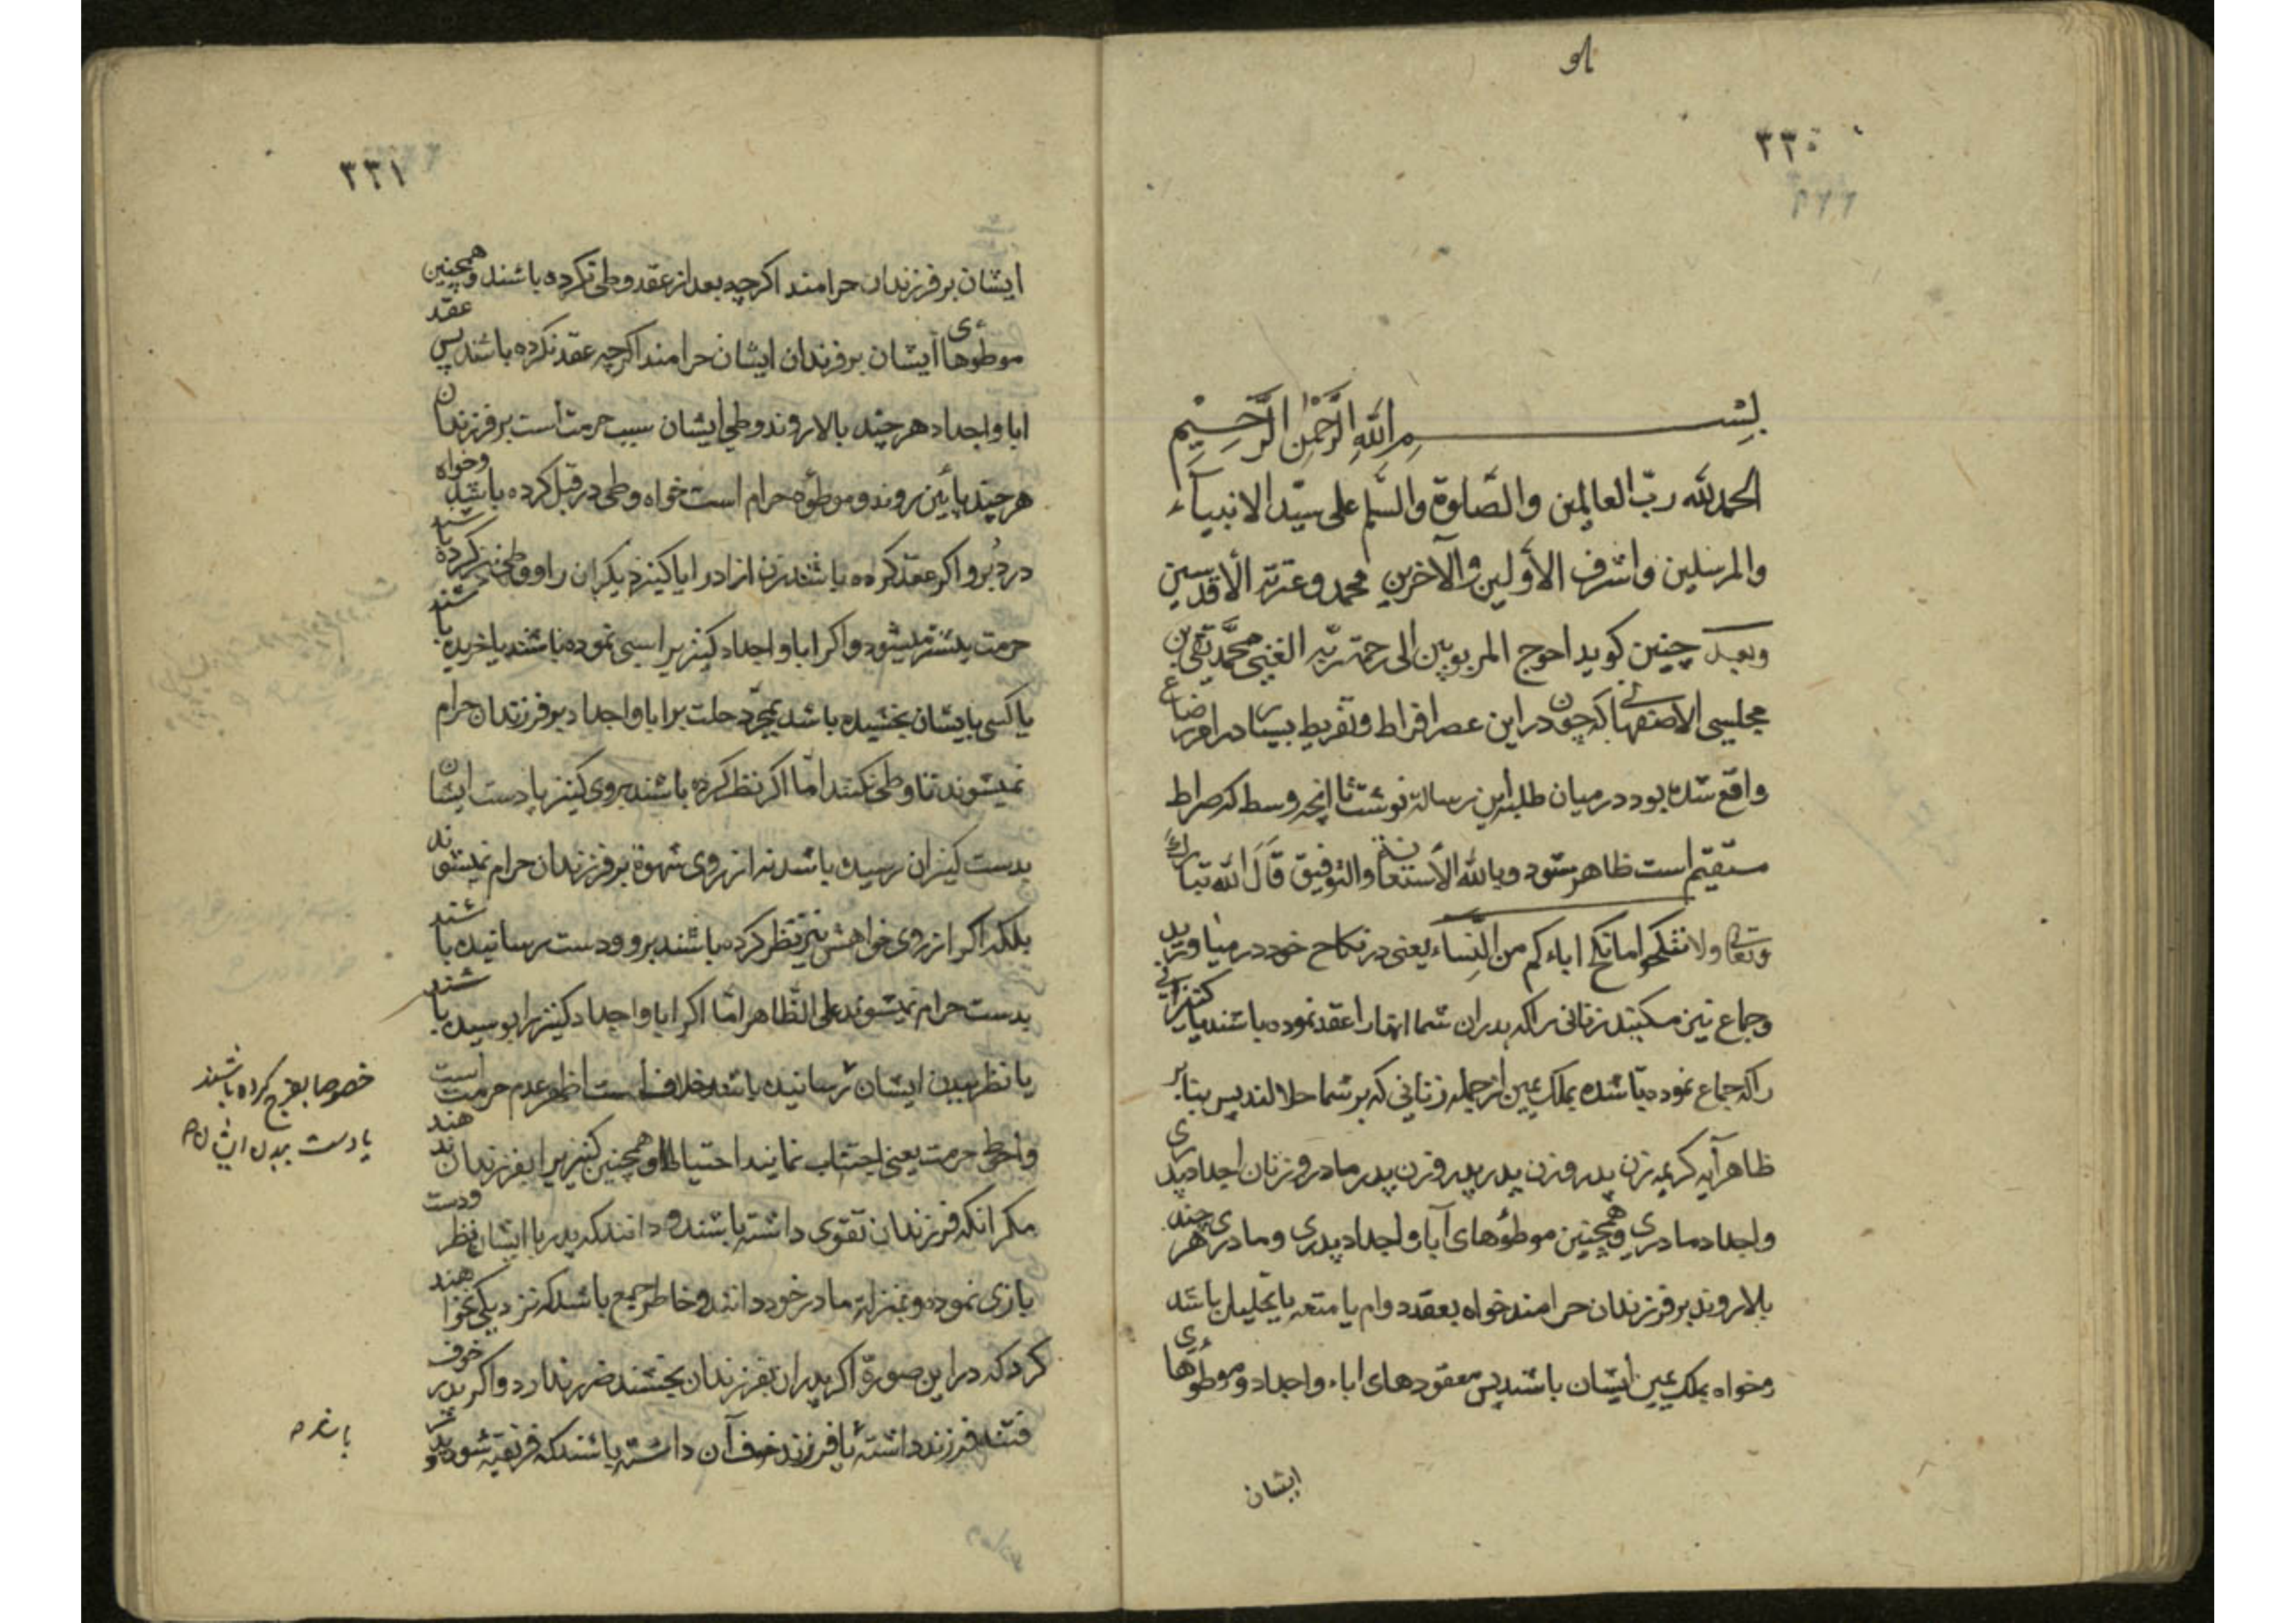 ٣٣٠
بسم الله الرحمن الرحیم
الحمد لله ربّ العالمین والصّلوة والسّلم علی سیّد الانبیآء
والمرسلین واشرف الأوّلین والآخرین محمد وعترته الأقدسین
وبعد چنین کوید احوج المربوبین الی رحمة ربّه الغنی محمّد تقی بن
مجلسی الاصفهانی که چون در این عصر افراط وتفریط بسیار در امر رضاع
واقع شده بود در میان طلبه این رساله نوشت تا انچه وسط که صراط
مستقیم است ظاهر شود وبالله الأستعانة والتوفیق قال الله تبارک
وتعالی ولا تنکحوا ما نکح اباءکم من النساء یعنی در نکاح خود در میاورید
وجماع نیز مکنید زنانی را که پدران شما انها را عقد نموده باشند یا کنیزانی
را که جماع نموده باشند بملک یمین از جمله زنانی که بر شما حلالند پس بنابر
ظاهر آیه کریمه زن پدر وزن پدر پدر وزن پدر مادر وزنان اجداد پدری
واجداد مادری وهمچنین موطؤهای آبا واجداد پدری ومادری هر چند
بالا روند بر فرزندان حرامند خواه بعقد دوام یا متعه یا تحلیل باشد
وخواه بملک یمین ایشان باشد پس معقودهای اباء واجداد وموطؤهای
ایشان
٣٣١
ایشان بر فرزندان حرامند اکرچه بعد از عقد وطی نکرده باشند وهمچنین
موطوهای ایشان بر فرزندان ایشان حرامند اکرچه عقد نکرده باشند پس عقد
ابا واجداد هر چند بالا روند ووطی ایشان سبب حرمت است بر فرزندان
هر چند پائین روند وموطؤه حرام است خواه وطی در قبل کرده باشد وخواه
در دُبر واکر عقد کرده باشند زن ازاد را یا کنیز دیکران را ووطی نیز کرده باشند
حرمت بیشتر میشود واکر ابا واجداد کنیز را اسیر نموده باشند یا خریده باشند
یا کسی بایشان بخشیده باشد بمجرّد حلت بر ابا واجداد بر فرزندان حرام
نمیشوند تا وطی نکنند امّا اکر نظر کرده باشند بروی کنیز یا دست ایشان
بدست کنیزان رسیده باشد نه از روی شهوة بر فرزندان حرام نمیشوند
بلکه اکر از روی خواهش نیز نظر کرده باشند برو ودست رسانیده باشند
بدست حرام نمیشوند علی الظّاهر امّا اکر ابا واجداد کنیز را بوسیده باشند
یا نظر ببدن ایشان رسانیده باشند خلاف است اظهر عدم حرمت است
واحوط حرمت یعنی اجتناب نمایند احتیاطا وهمچنین کنیز را بفرزندان ندهند
مکر انکه فرزندان تقوی داشته باشند ودانند که پدر با ایشان نظر ودست
بازی نموده وبمنزله مادر خود دانند وخاطر جمع باشد که نزدیکی نخواهند
کرد که در این صورة اکر پدران بفرزندان بخشند ضرر ندارد واکر پدر خوف
فتنه فرزند داشته یا فرزند خوف آن داشته باشند که فریفته شود
خصوصا بفرج کرده باشند
یا دست ببدن ایشان
باشد